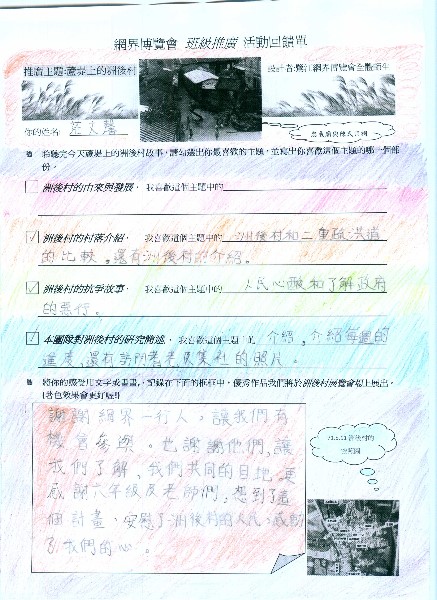 網界博覽會 班級推廣 活動回饋單
推廣主題:蘆堤上的洲後村
你的姓名:
聽完今天蘆堤上的洲後村故事，請勾選出你最喜歡的主題，並寫出你喜歡這個主題的哪一個部份。
洲後村的由來與發展， 我喜歡這個主題中的
洲後村的村落介紹， 我喜歡這個主題中的 洲後村和二重疏洪道
的比較。還有洲後村的介紹。
洲後村的抗爭故事， 我喜歡這個主題中的 人民心酸和了解政府
的惡行。
本團隊對洲後村的研究簡述， 我喜歡這個主題中的 介紹，介紹每週的
進度，還有訪問耆老及集社的照片。
將你的感受用文字或畫畫，記錄在下面的框框中，優秀作品我們將於洲後村展覽會場上展出。
(著色效果會更好喔!)
謝謝網界一行人，讓我們有
機會參與。也謝謝他們，讓
我們了解，我們共同的目地。要
感謝六年級及老師們，想到了這
個計畫，安慰了洲後村的人民，感動
了我們的心。